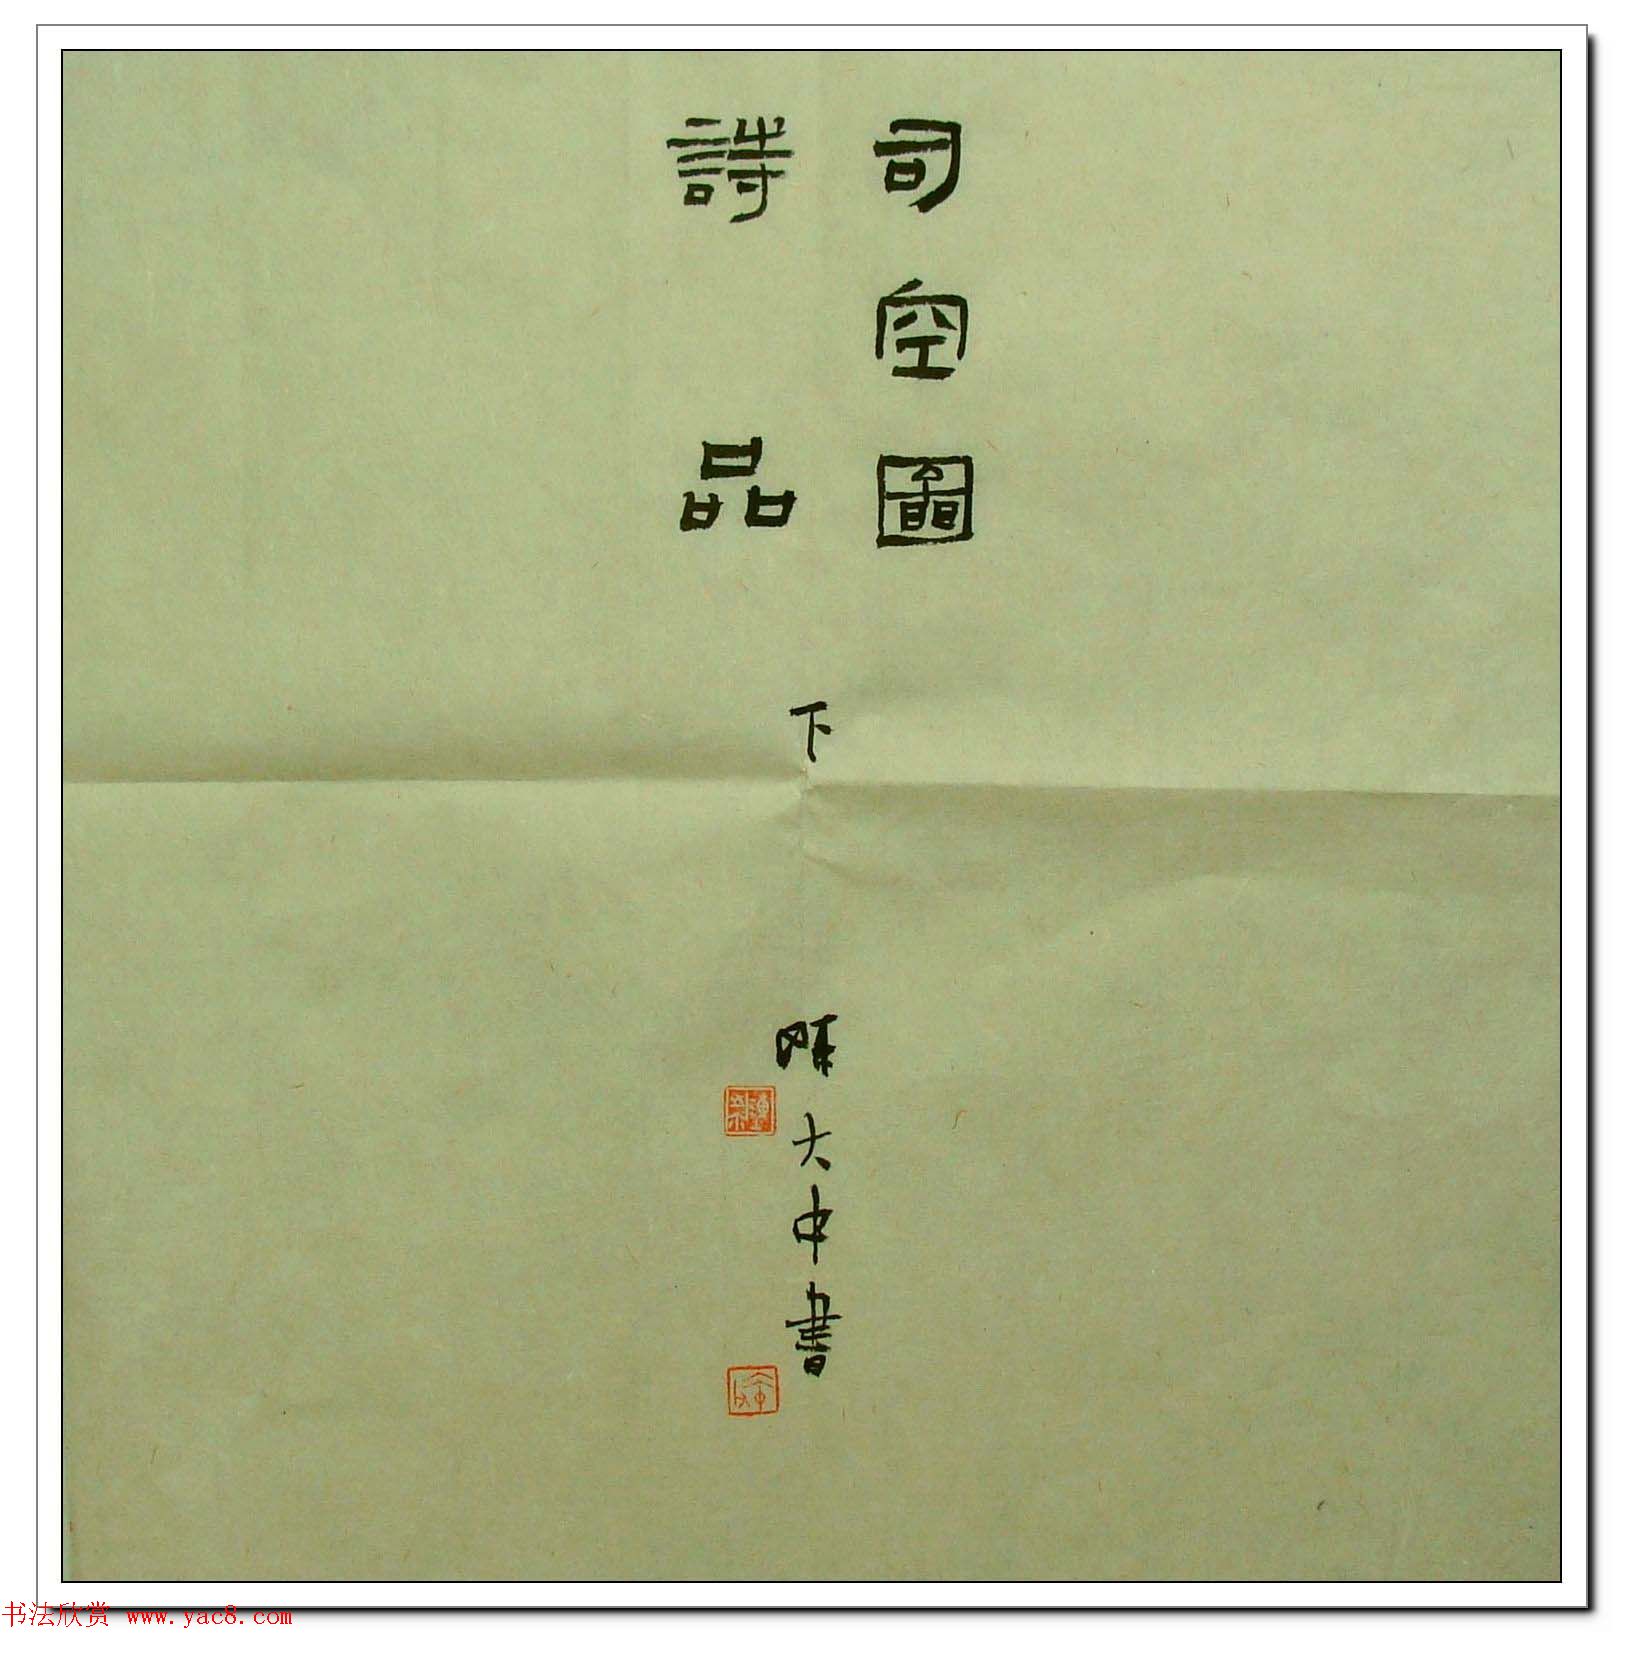 司空圖
詩品
下
陳大中書
书法欣赏 www.yac8.com